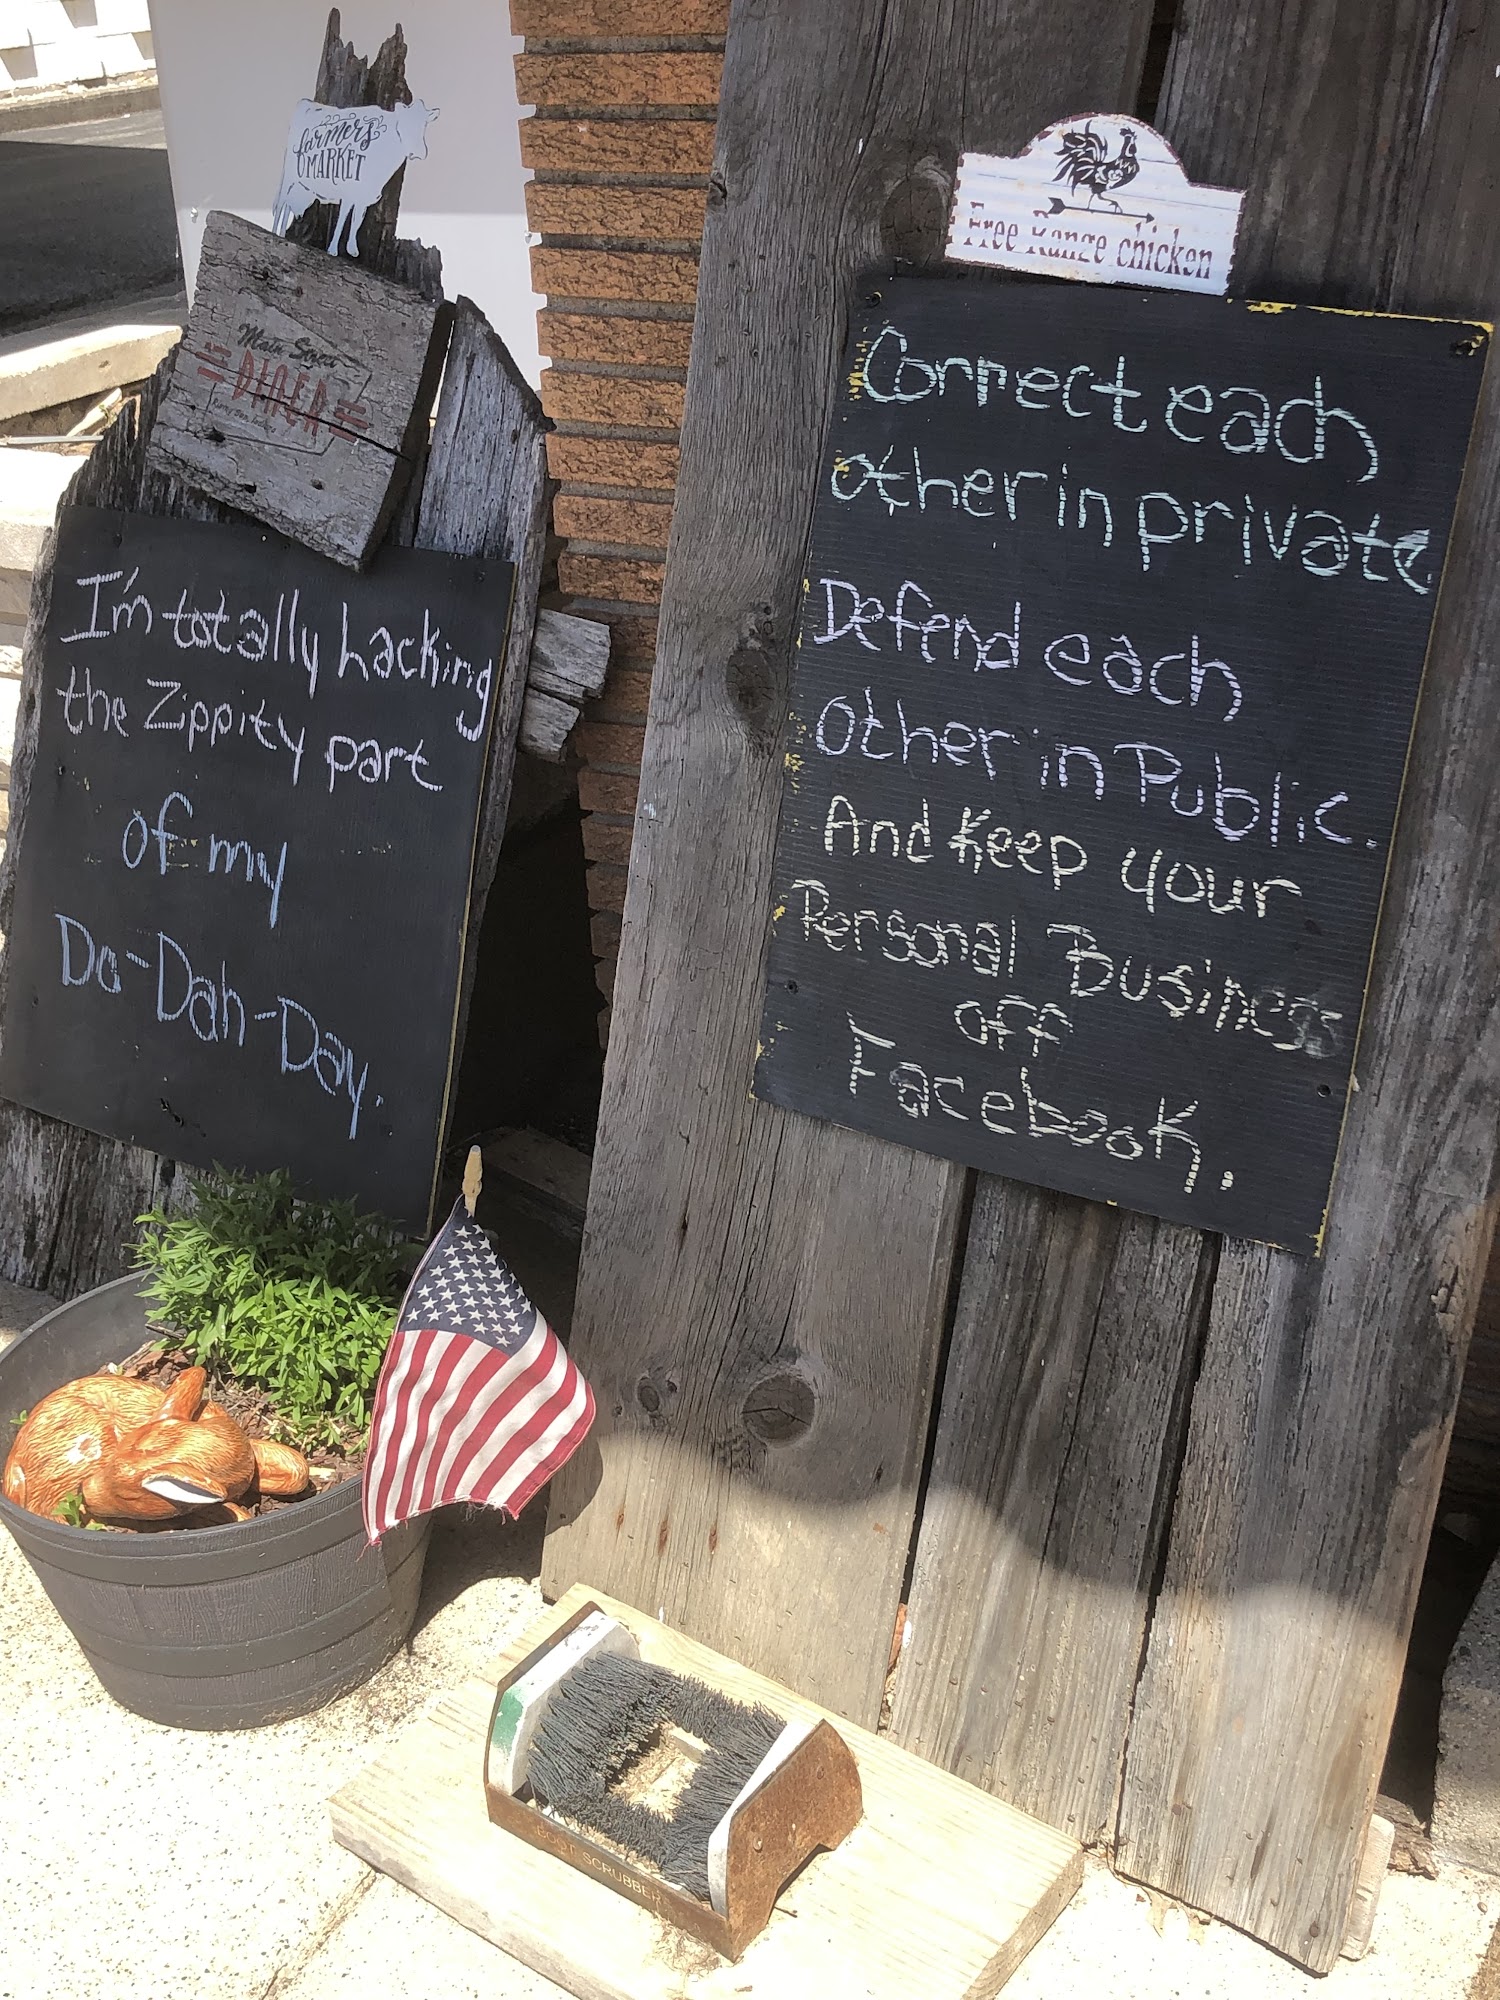 farmers
MARKET
Main Street
DINER
I'm totally hacking
the Zippity part
of my
Do-Dah-Day.
Free Range chicken
Correct each
other in private
Defend each
Other in Public.
And Keep your
Personal Business
off
Facebook.
BOOT SCRUBBER